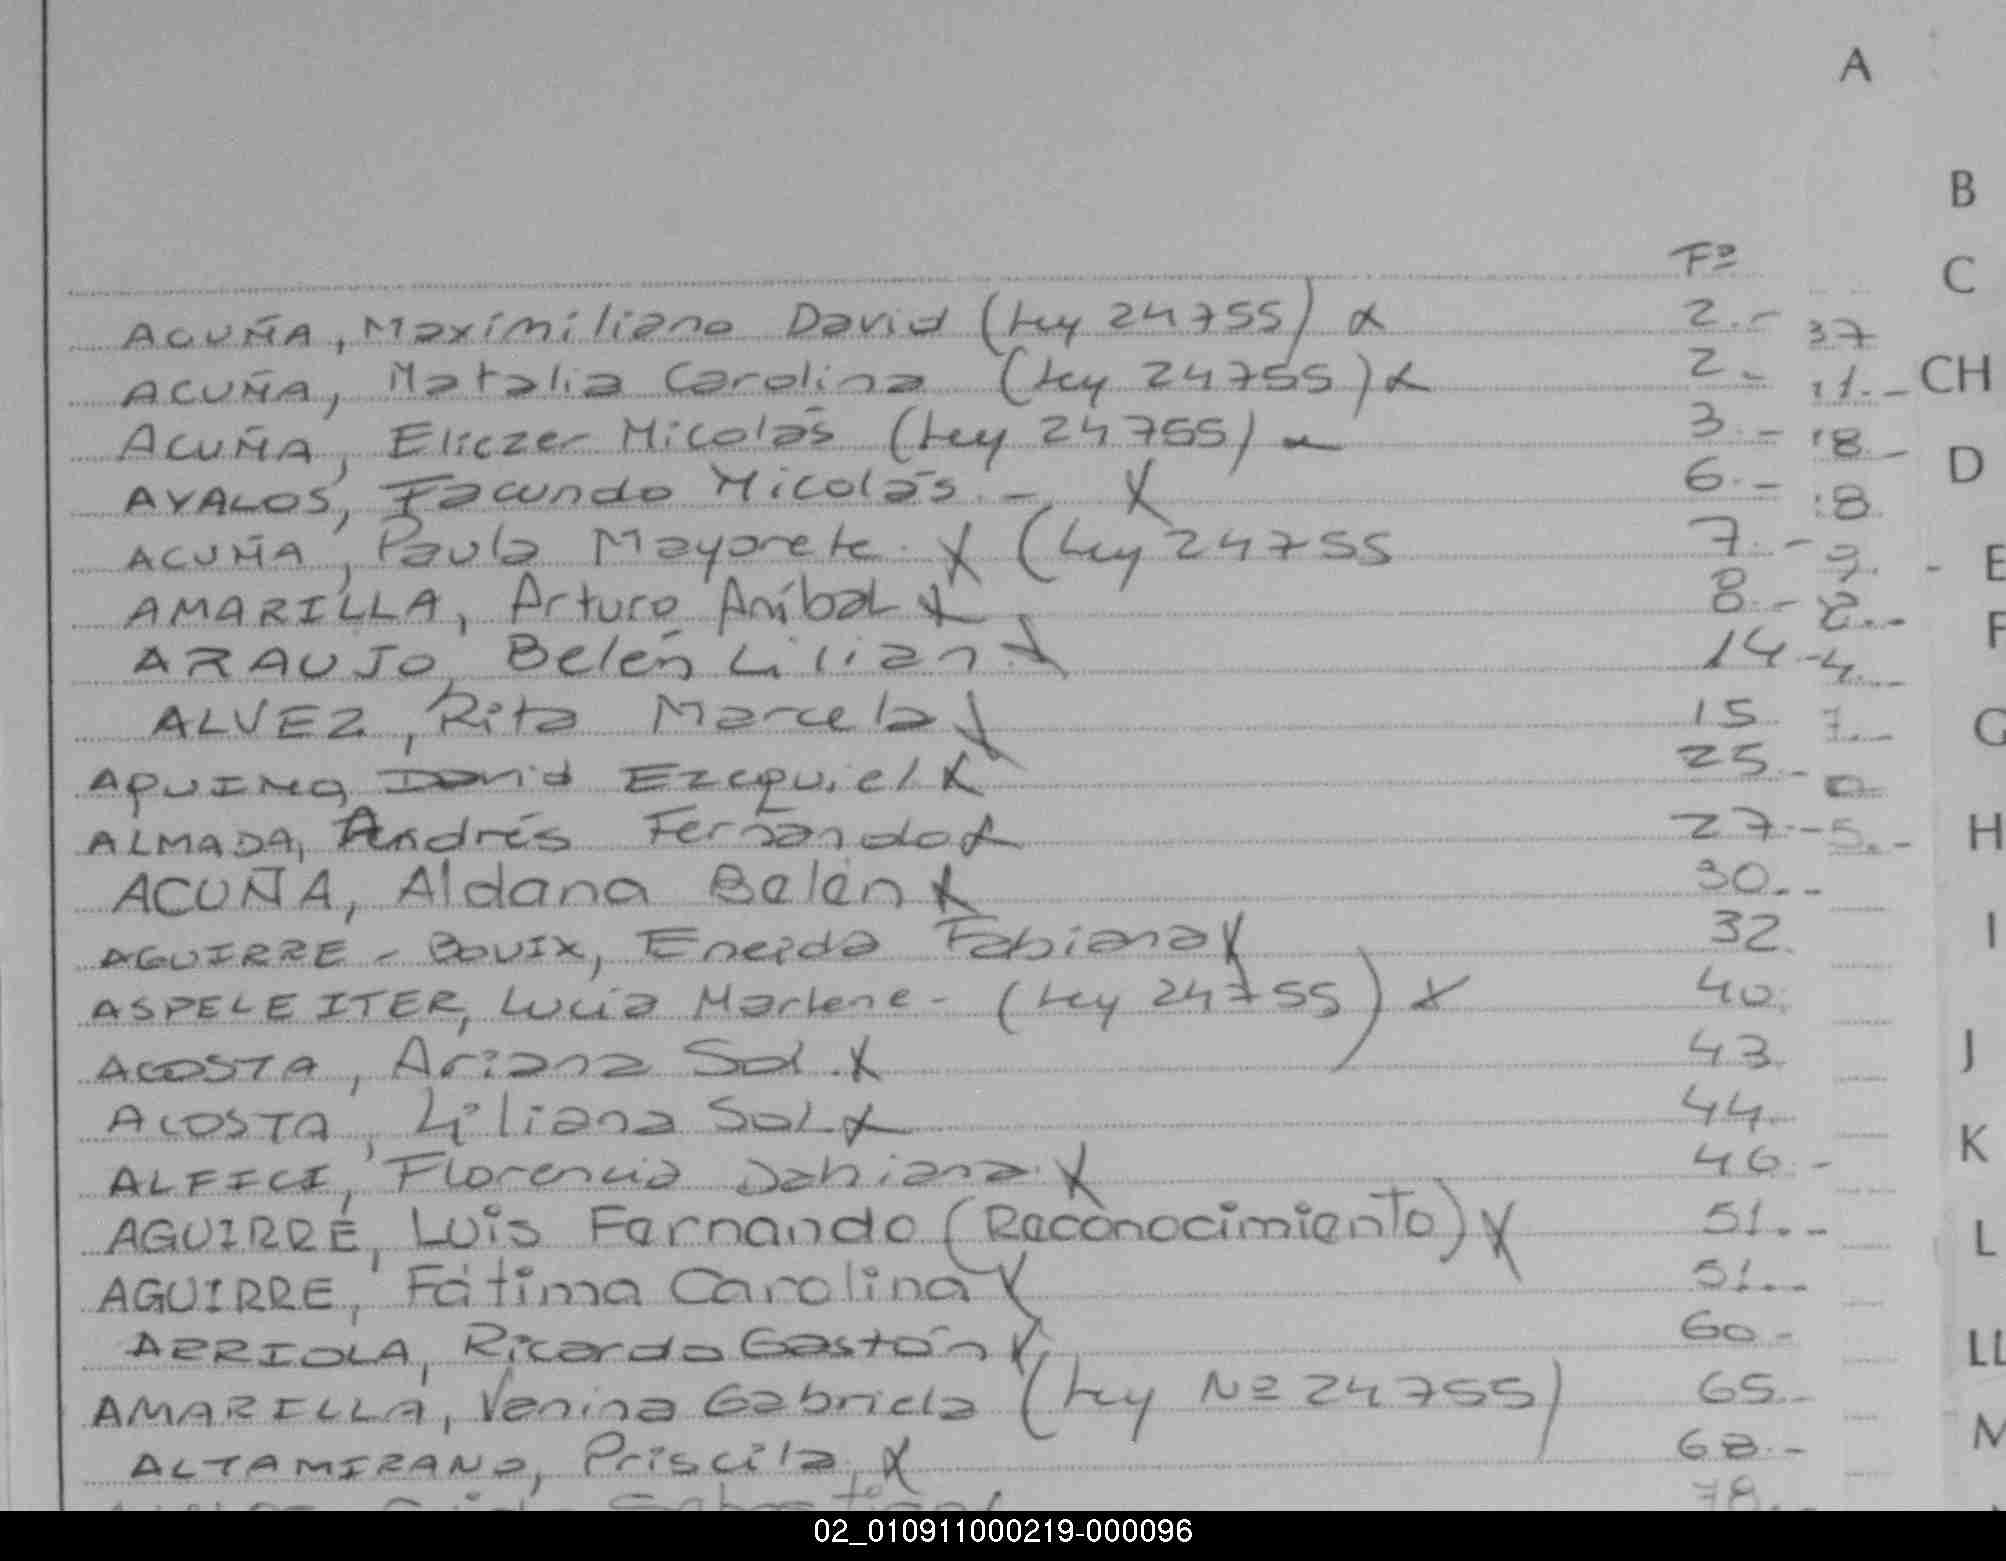 A
B
Fº
C
ACUÑA, Maximiliano David (Ley 24755) x 2.- 37
ACUÑA, Natalia Carolina (Ley 24755) x 2.- 11.- CH
ACUÑA, Eliezer Nicolás (Ley 24755) 3.- 8.- D
AYALOS, Facundo Nicolás.- X 6.- 8.
ACUÑA, Paula Mayorete. X (Ley 24755 7.- 9.- E
AMARILLA, Arturo Aníbal X 8.- 2.- F
ARAUJO, Belén Lilian X 14.- 4.-
ALVEZ, Rita Marcela X 15 7.- G
AQUINO, David Ezequiel X 25.- 0
ALMADA, Andrés Fernando X 27.- 5.- H
ACUÑA, Aldana Belén X 30.-
AGUIRRE - BOUIX, Eneida Fabiana X 32. I
ASPELEITER, Lucía Marlene - (Ley 24755) X 40.
ACOSTA, Ariana Sol. X 43 J
ACOSTA, Liliana Sol X 44.
ALFICI, Florencia Dahiana. X 46.- K
AGUIRRE, Luis Fernando (Reconocimiento) X 51.- L
AGUIRRE, Fátima Carolina X 51.-
ARRIOLA, Ricardo Gastón X 60.- LL
AMARILLA, Vanina Gabriela (Ley Nº 24755) 65.-
ALTAMIRANO, Priscila, X 68.- M
78.
02_010911000219-000096